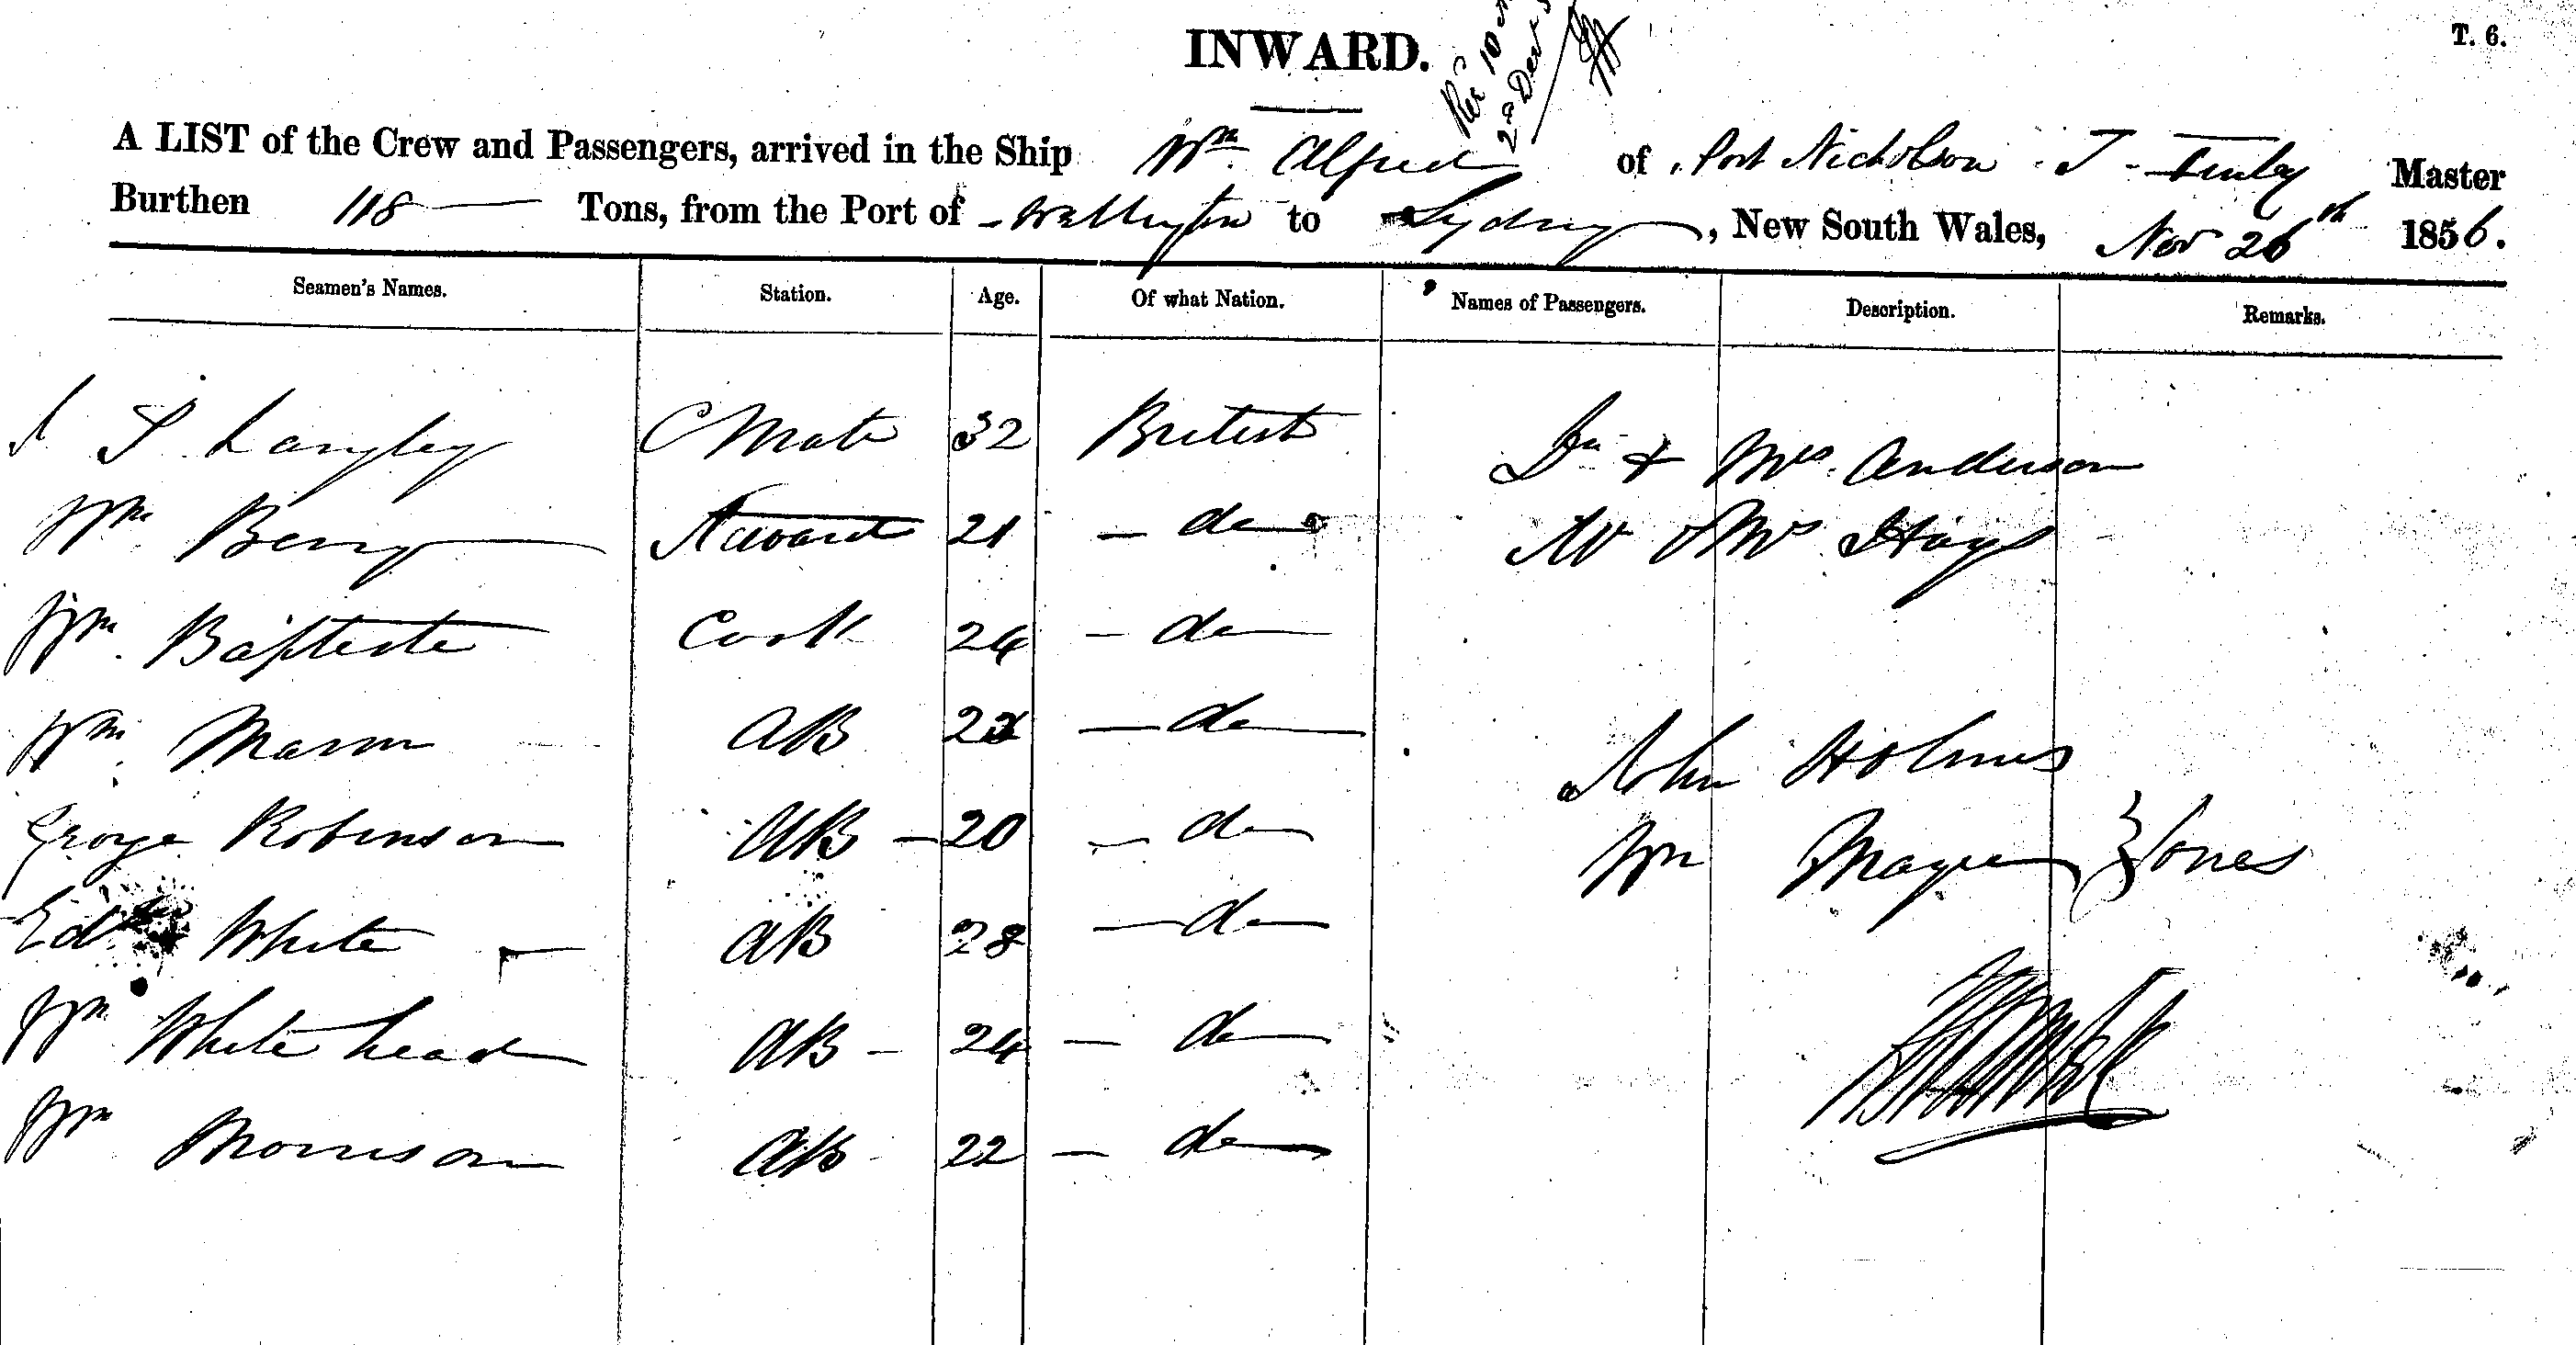 INWARD.
T. 6.
Rec 10 
2nd Decr
A LIST of the Crew and Passengers, arrived in the Ship Wm Alfred of Port Nicholson J Master
Burthen 118 Tons, from the Port of Wellington to Sydney, New South Wales, Nov 26th 1856.
Seamen's Names. Station. Age. Of what Nation. Names of Passengers. Description. Remarks.
Langley C Mate 32 British Dr & Mrs Anderson
Wm Berry Steward 21 - do Mr & Mrs Hays
Wm Baptiste Cook 24 - do
Wm Mason AB - do John Holmes
George Robinson AB - 20 - do Wm Jones
White AB 28 - do
Wm Whitehead AB - 24 - do
Wm Morrison AB 22 - do